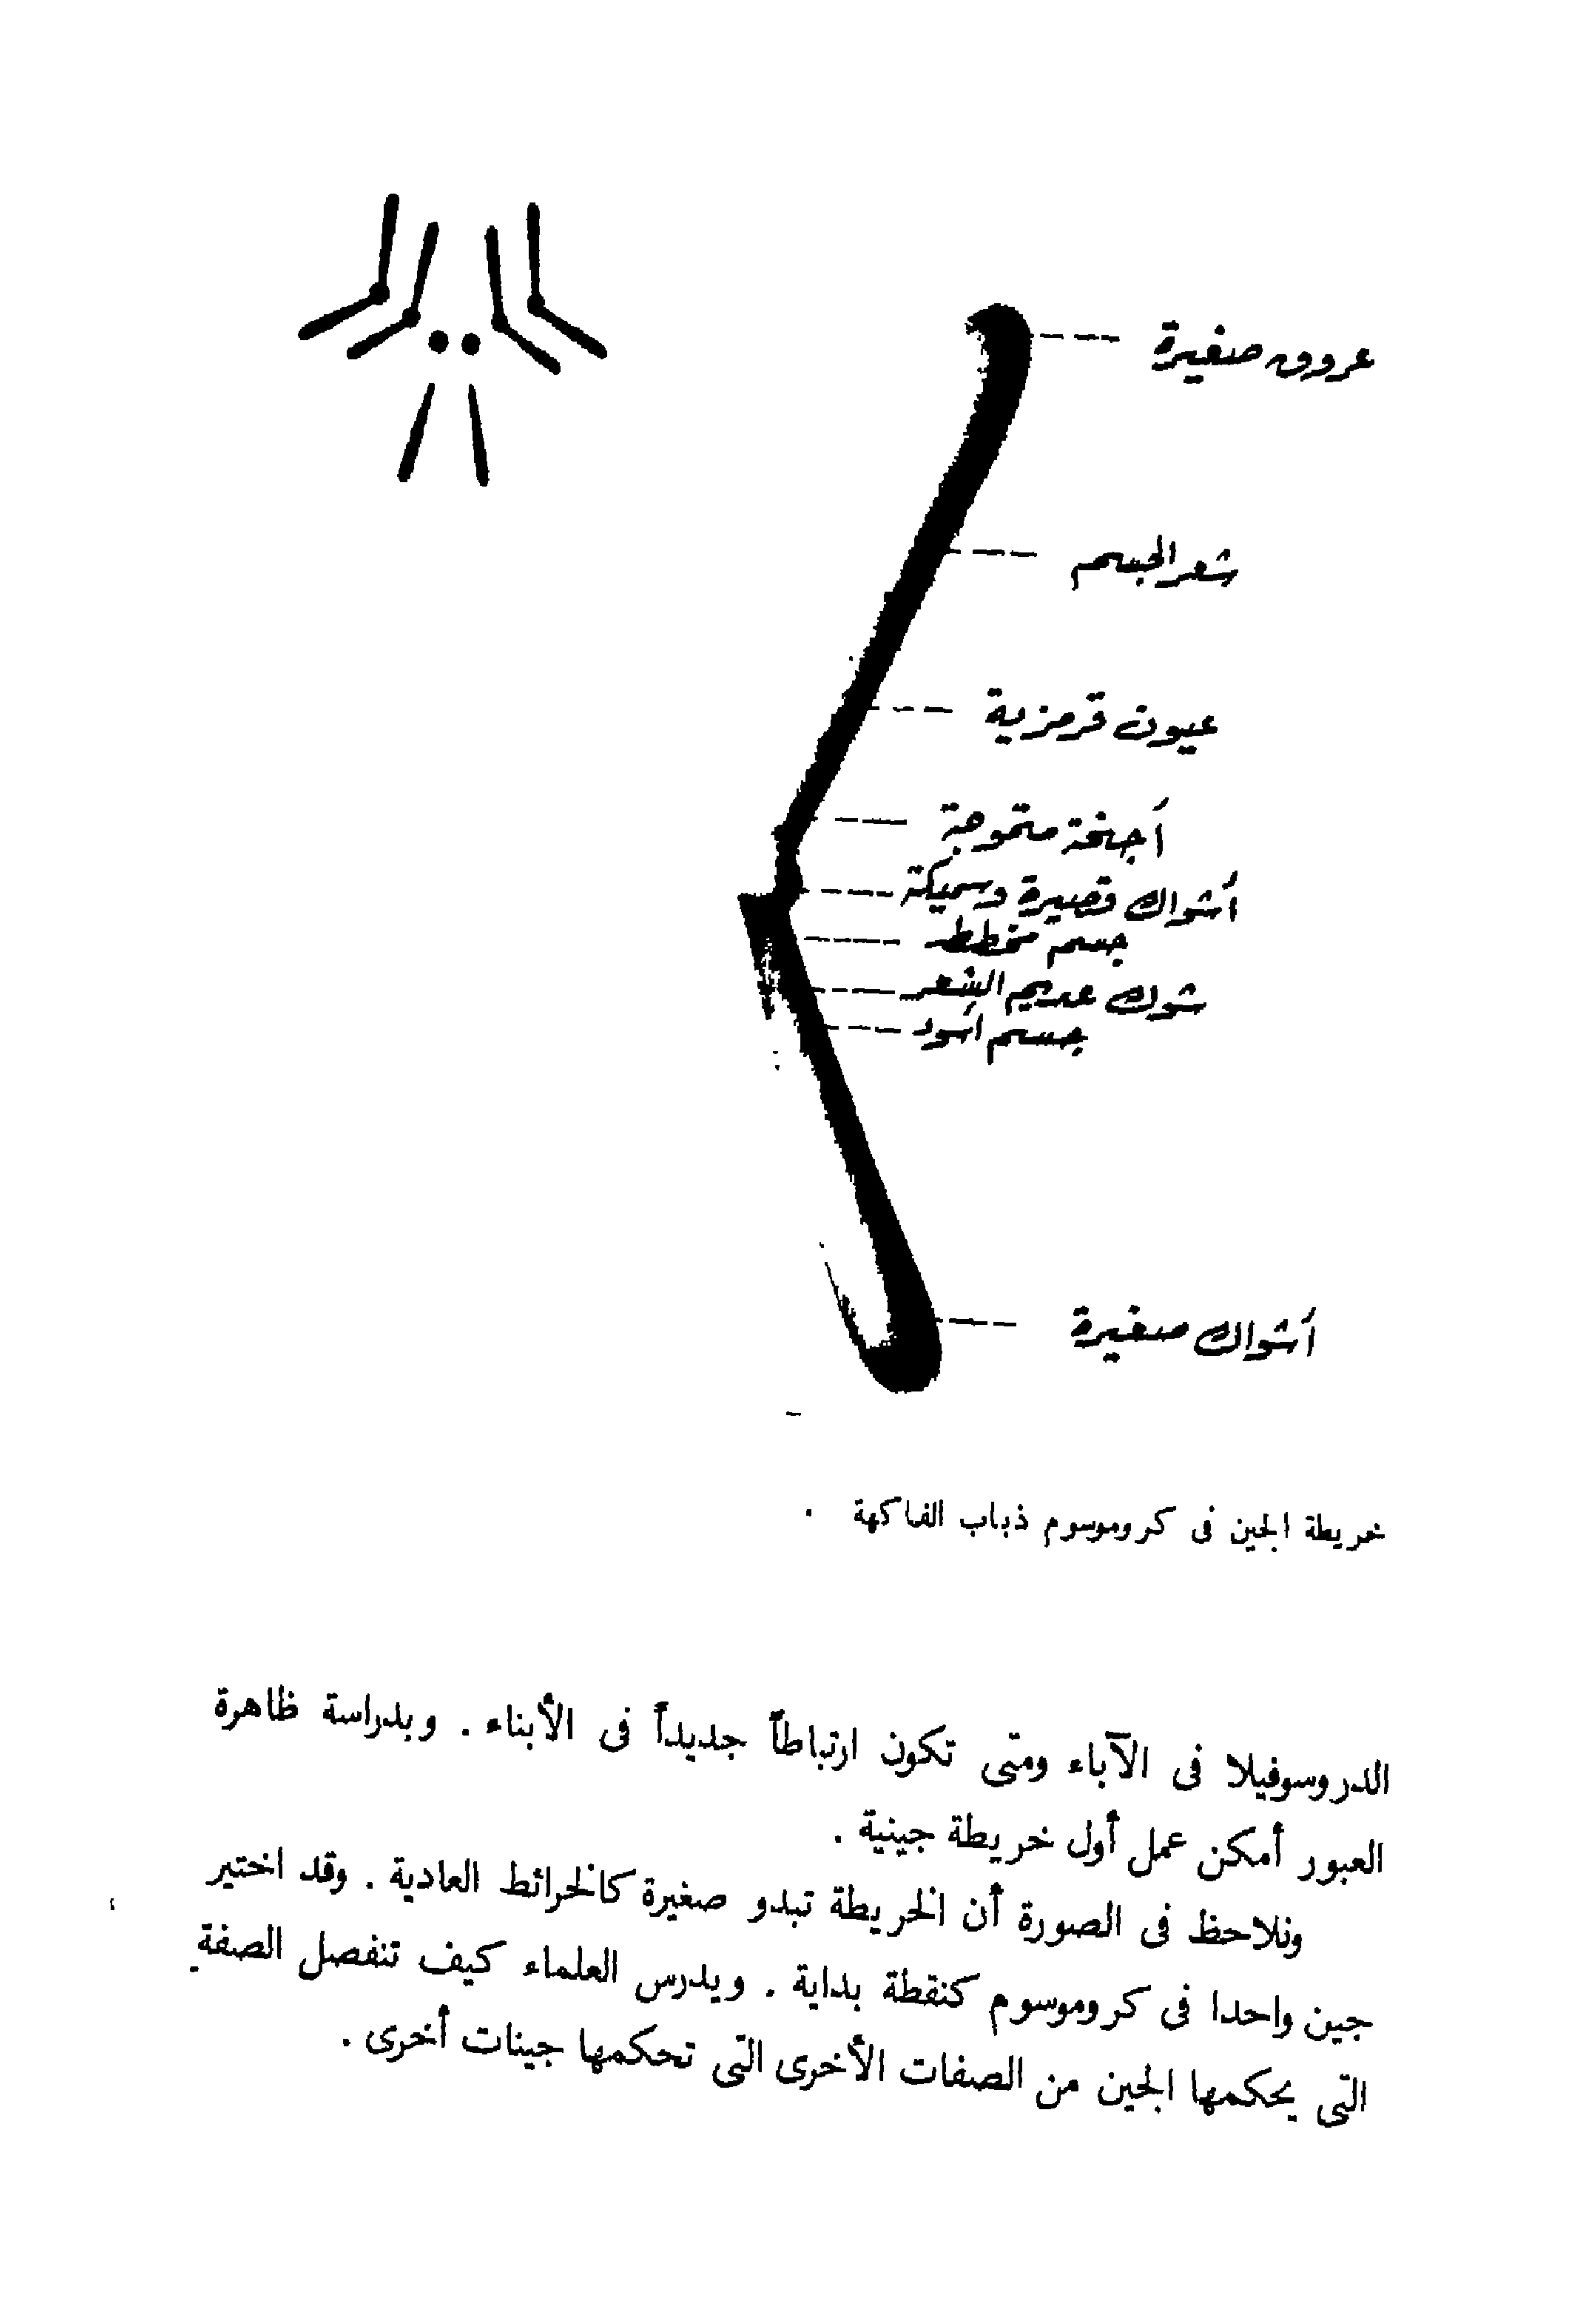 عروق صغيرة
شعر الجسم
عيون قرمزية
أجنحة متموجة
أشواك قصيرة وسميكة
جسم مخطط
شوك عديم الشعر
جسم أسود
أشواك صغيرة
خريطة الجين فى كروموسوم ذباب الفاكهة .
الدروسوفيلا فى الآباء ومتى تكون ارتباطاً جديداً فى الأبناء . وبدراسة ظاهرة
العبور أمكن عمل أول خريطة جينية .
ونلاحظ فى الصورة أن الخريطة تبدو صغيرة كالخرائط العادية . وقد اختير
جين واحدا فى كروموسوم كنقطة بداية . ويدرس العلماء كيف تنفصل الصفة
التى يحكمها الجين من الصفات الأخرى التى تحكمها جينات أخرى .